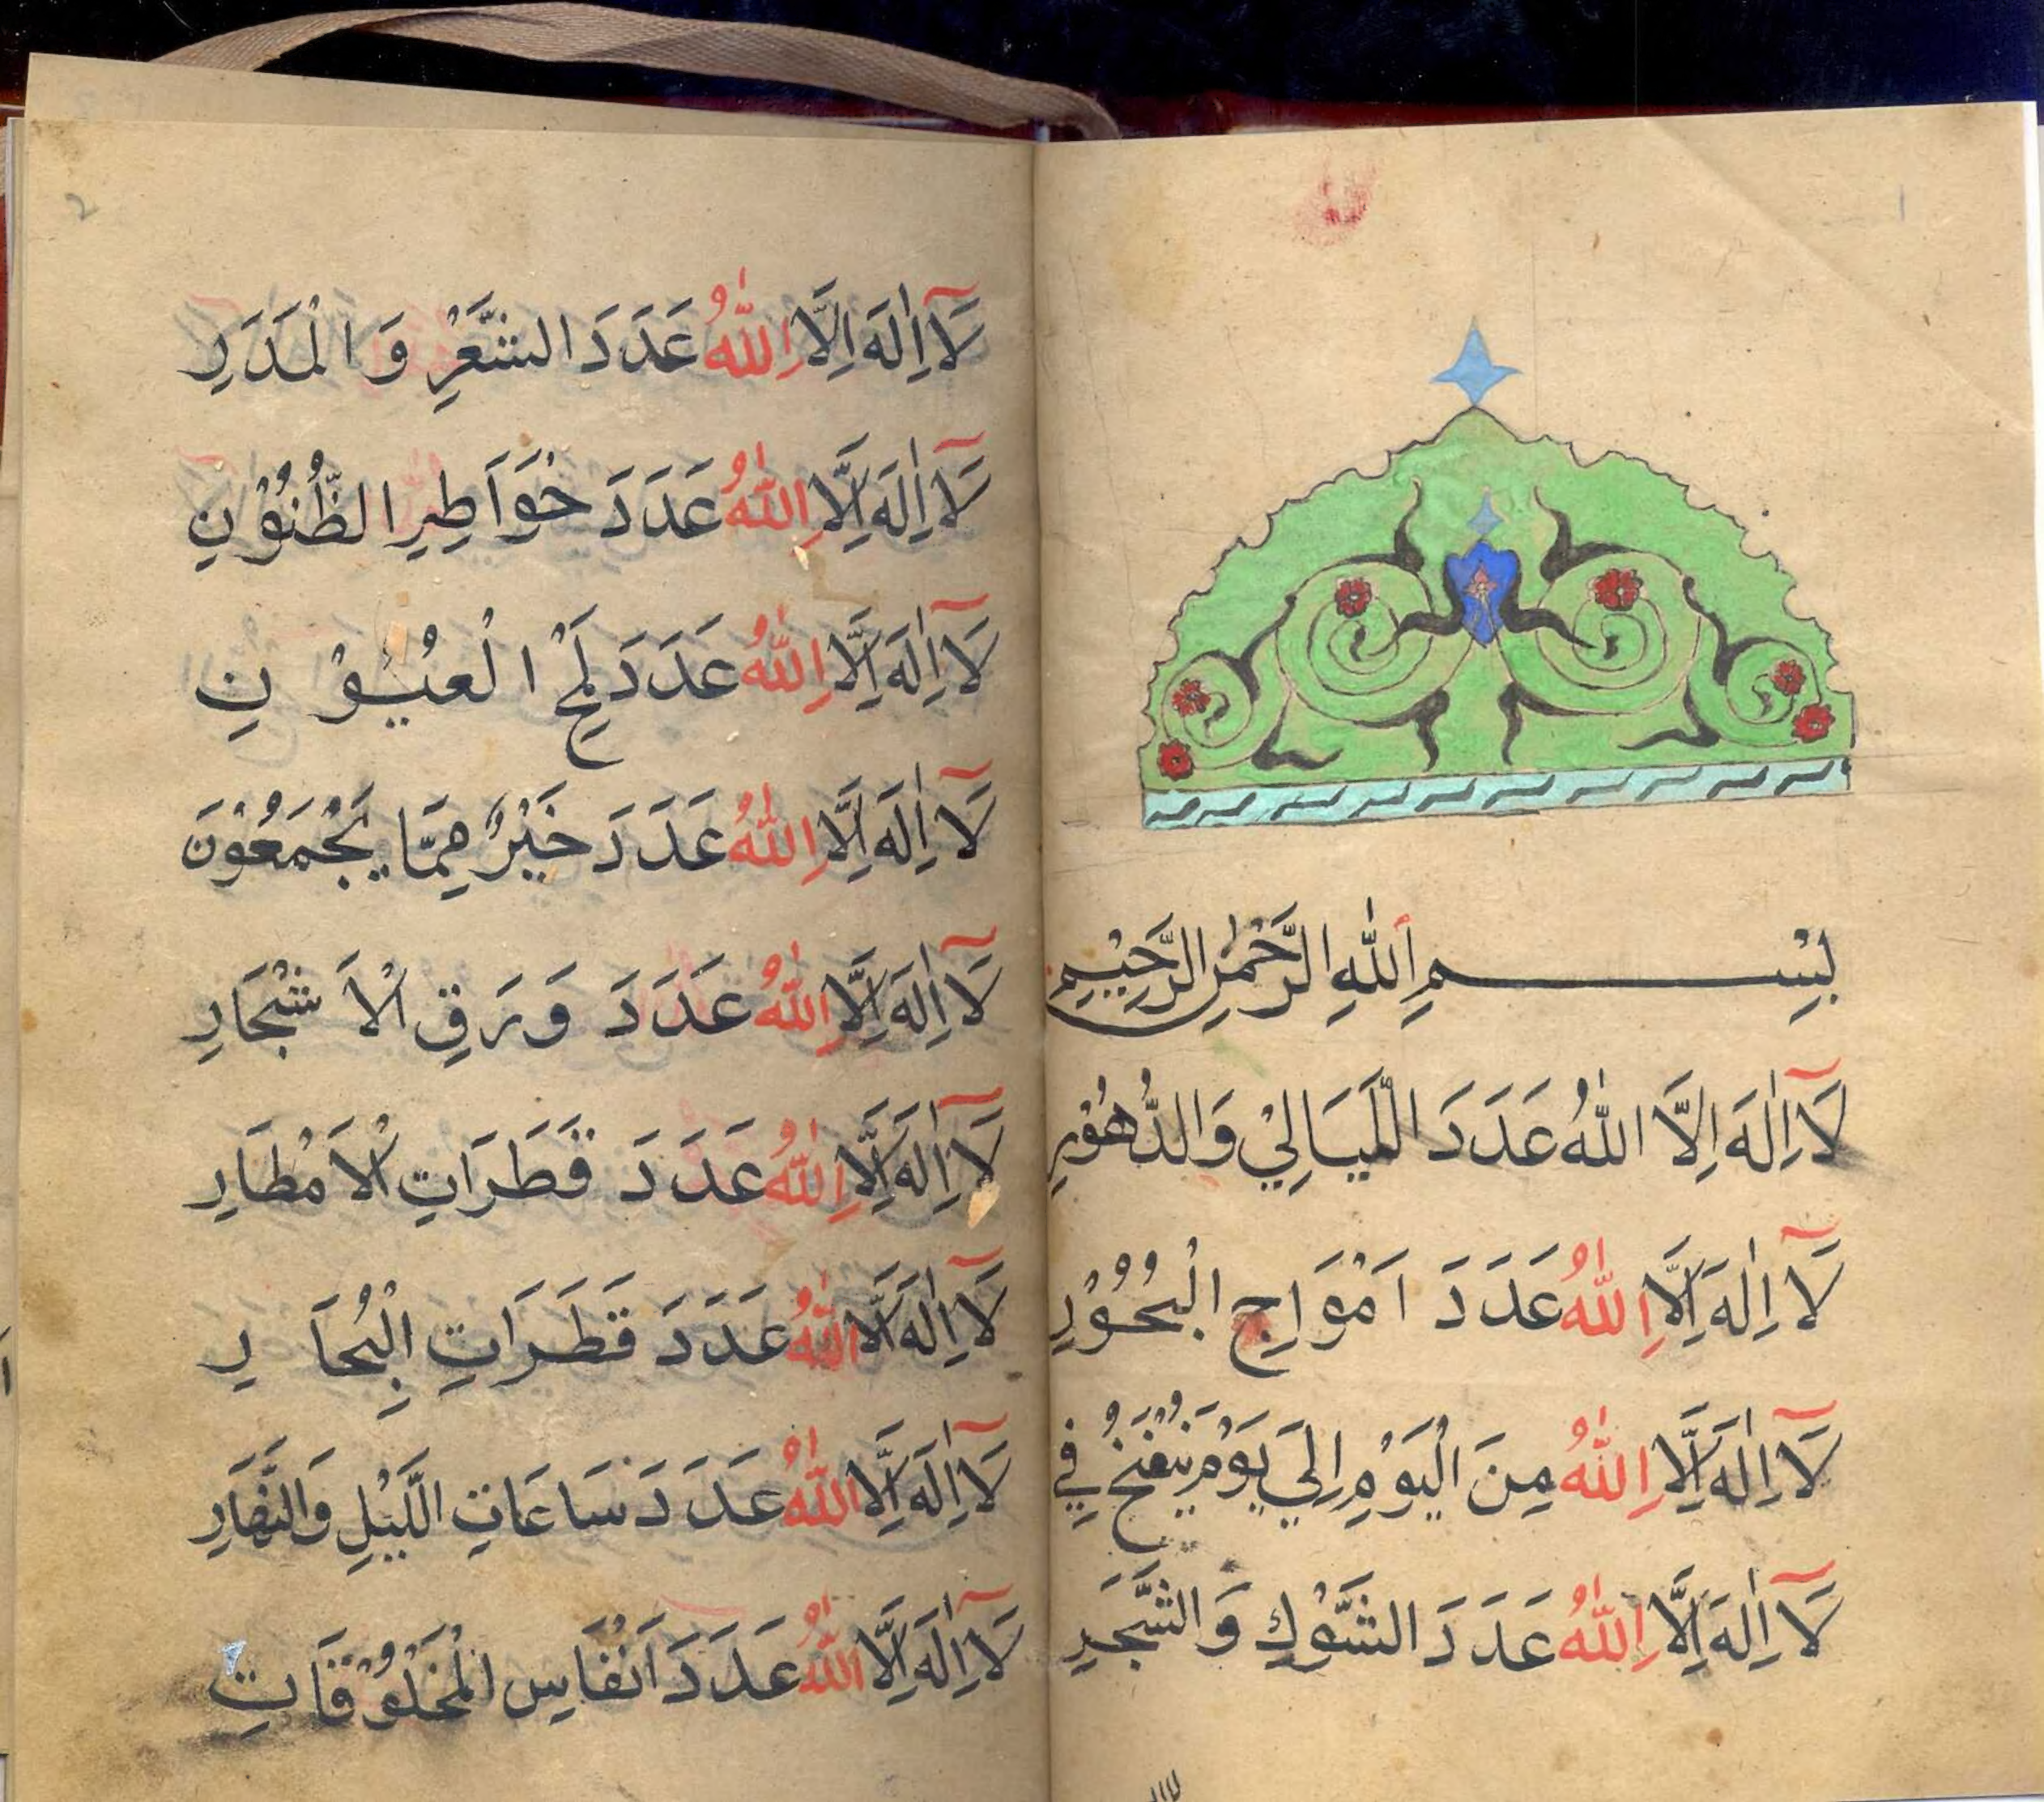 ١
بِسْمِ اللّٰهِ الرَّحْمٰنِ الرَّحِيْمِ
لَآ اِلٰهَ اِلَّا اللّٰهُ عَدَدَ الَّليَالِيْ وَالدُّهُوْرِ
لَآ اِلٰهَ اِلَّا اللّٰهُ عَدَدَ اَمْوَاجِ الْبُحُوْرِ
لَآ اِلٰهَ اِلَّا اللّٰهُ مِنَ الْيَوْمِ اِلَي يَوْمَ يُنْفَخُ فِي
لَآ اِلٰهَ اِلَّا اللّٰهُ عَدَدَ الشَّوْكِ وَالشَّجَرِ
2
لَآ اِلٰهَ اِلَّا اللّٰهُ عَدَدَ الشَّعْرِ وَالْمَدَرِ
لَآ اِلٰهَ اِلَّا اللّٰهُ عَدَدَ خَوَاطِرِ الظُّنُوْنِ
لَآ اِلٰهَ اِلَّا اللّٰهُ عَدَدَ لَمْحِ الْعُيُوْنِ
لَآ اِلٰهَ اِلَّا اللّٰهُ عَدَدَ خَيْرٌ مِمَّا يَجْمَعُوْنَ
لَآ اِلٰهَ اِلَّا اللّٰهُ عَدَدَ وَرَقِ الْاَشْجَارِ
لَآ اِلٰهَ اِلَّا اللّٰهُ عَدَدَ قَطَرَاتِ الْاَمْطَارِ
لَآ اِلٰهَ اِلَّا اللّٰهُ عَدَدَ قَطَرَاتِ الْبِحَارِ
لَآ اِلٰهَ اِلَّا اللّٰهُ عَدَدَ سَاعَاتِ الَّليْلِ وَالنَّهَارِ
لَآ اِلٰهَ اِلَّا اللّٰهُ عَدَدَ اَنْفَاسِ الْمَخْلُوْقَاتِ